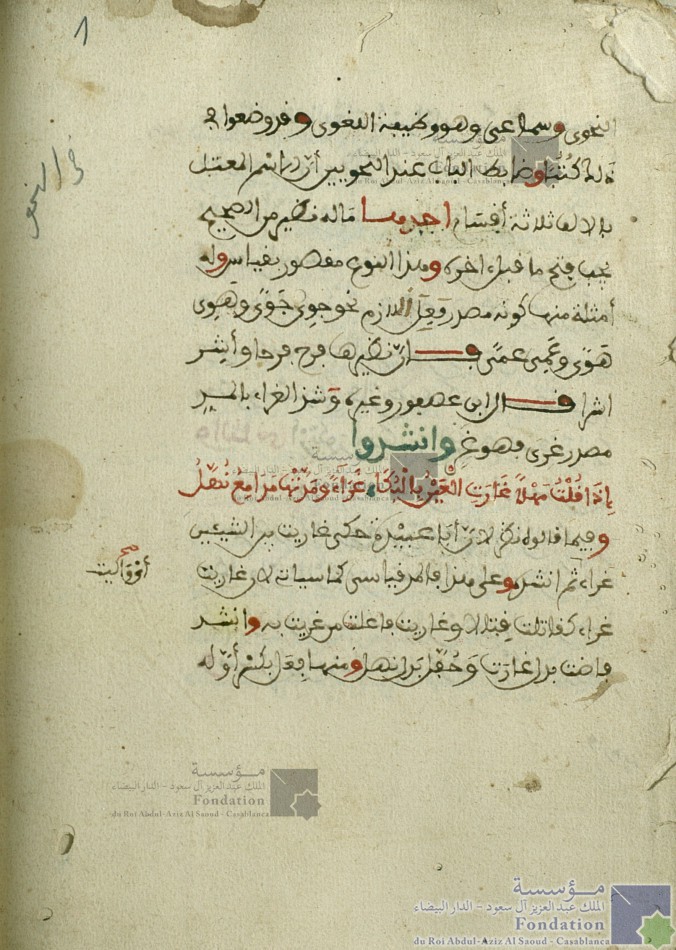 النحوى وسماعى وهو وظيفة اللغوى وقد وضعوا في
ذلك كتبا وضابط الباب عند النحويين أن الاسم المعتل
بالالف ثلاثة أقسام احدها ما له نظير من الصحيح
يجب فتح ما قبل اخره وهذا النوع مقصور بقياس وله
أمثلة منها كونه مصدر فعل اللازم نحو جوى جوًى وهوى
هوًى وعمى عمًى فإن نظيرها فرح فرحا وأشر
اشرا قال ابن عصفور وغيره وشذ الغراء بالمد
مصدر غرى فهو غر وانشدوا
إذا قلت مهلا غارت العين بالبكاء غراء ومدتها مدامع نهل
وفيما قالوه نظر لان أبا عبيدة حكى غاريت بين الشيئين
غراء ثم انشده وعلى هذا فالمد قياسى كما سياتى لان غاريت
غراء كقاتلت قتالا وغاريت فاعلت من غريت به وانشد
فاضت بدل غارت وحفل بدل نهل ومنها فعل بكسر أوله
أو قاليت
صح
1
مؤسسة
الملك عبد العزيز آل سعود - الدار البيضاء
Fondation
du Roi Abdul-Aziz Al Saoud - Casablanca
مؤسسة
الملك عبد العزيز آل سعود - الدار البيضاء
Fondation
du Roi Abdul-Aziz Al Saoud - Casablanca